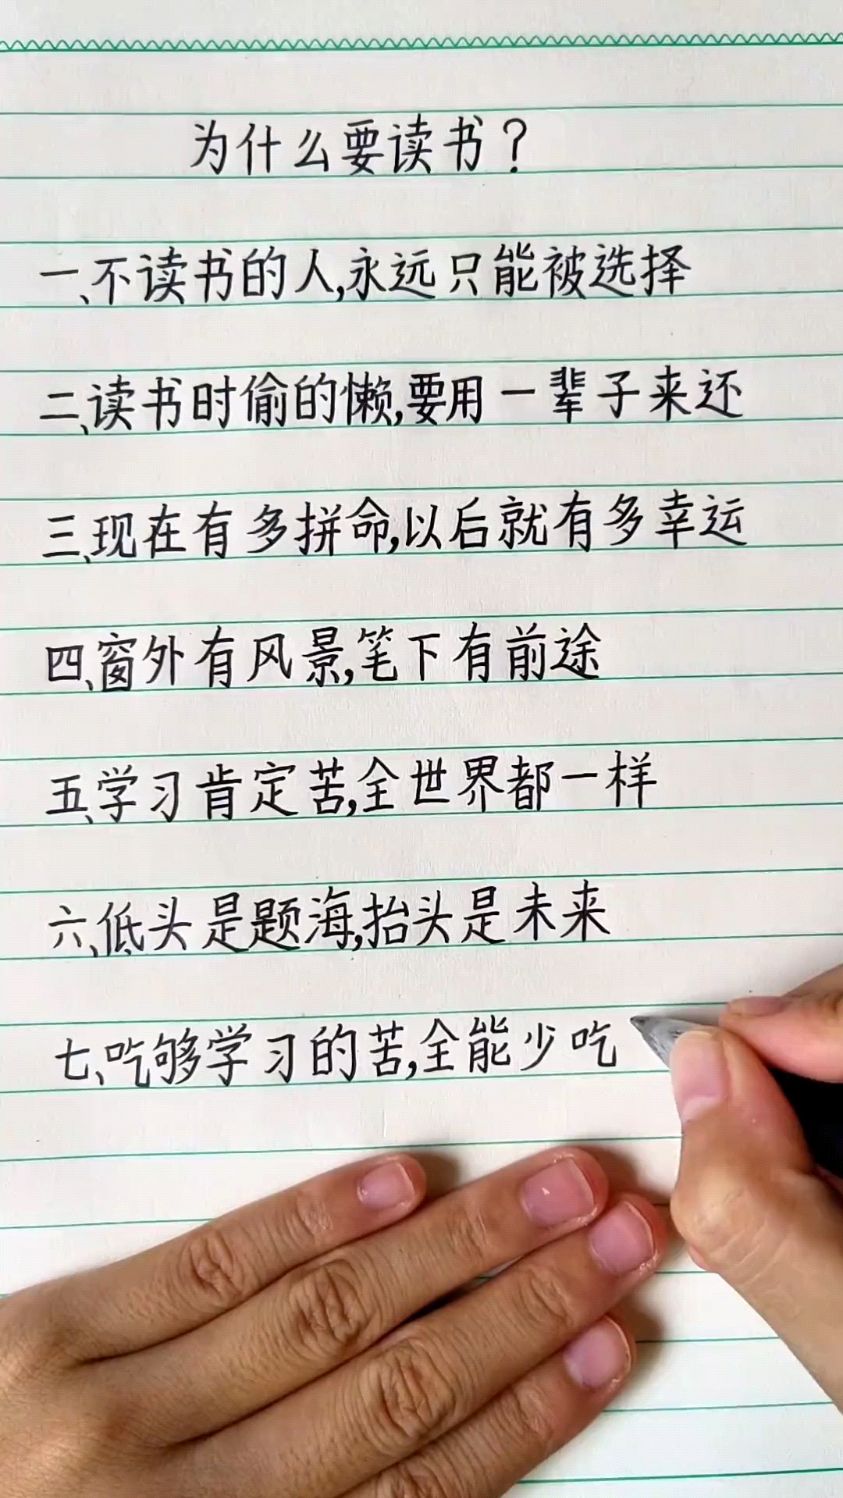 为什么要读书？
一、不读书的人,永远只能被选择
二、读书时偷的懒,要用一辈子来还
三、现在有多拼命,以后就有多幸运
四、窗外有风景,笔下有前途
五、学习肯定苦,全世界都一样
六、低头是题海,抬头是未来
七、吃够学习的苦,全能少吃